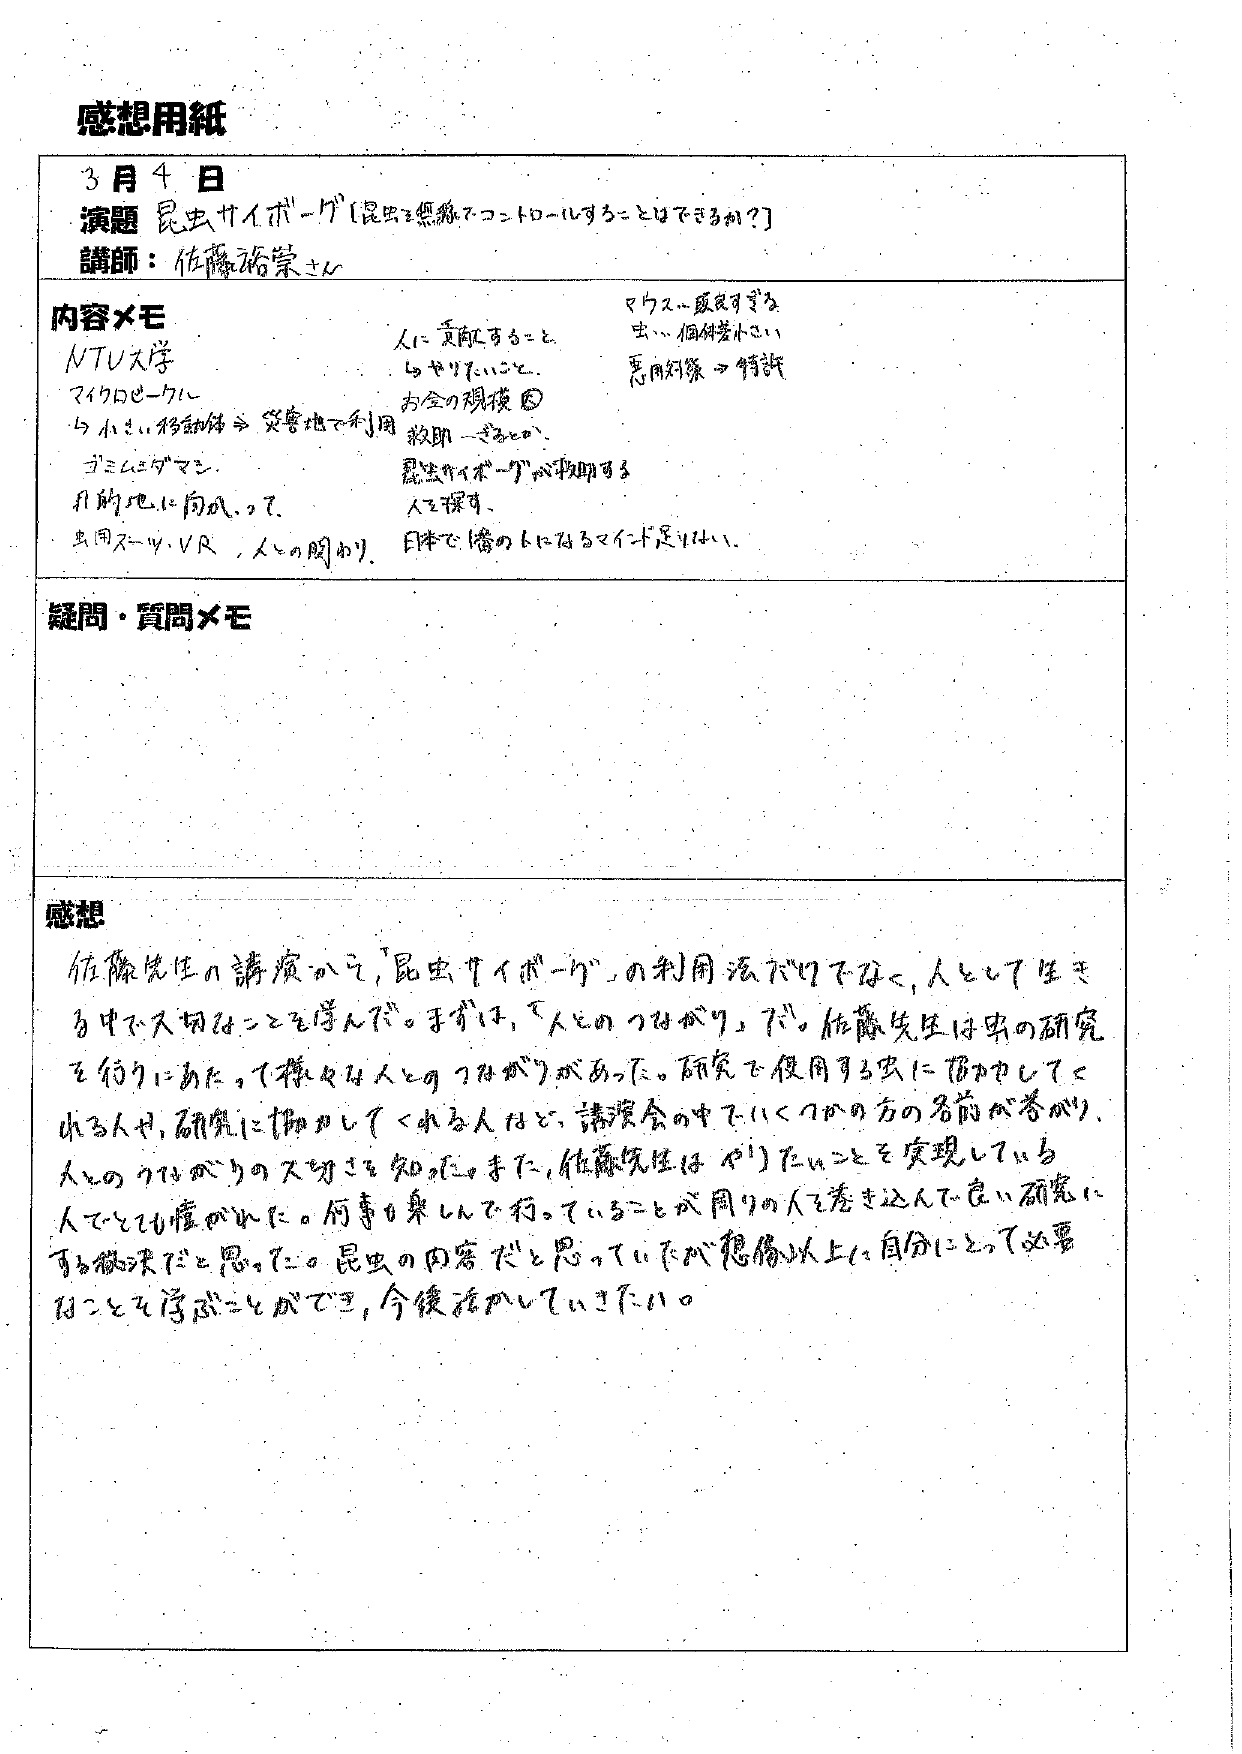 感想用紙
3月4日
演題 昆虫サイボーグ[昆虫を無線でコントロールすることはできるか?]
講師：佐藤裕崇さん
内容メモ
NTU大学
マイクロビークル
↳小さい移動体⇒災害地で利用
ゴミムシダマシ.
目的地に向かって
虫用スーツ・VR、人との関わり.
人に貢献すること
↳やりたいこと.
お金の規模
救助
昆虫サイボーグが救助する
人を探す、
日本で1番の人になるマインド足りない.
マウス…
虫…個体差小さい
悪用対策→特許
疑問・質問メモ
感想
佐藤先生の講演から,「昆虫サイボーグ」の利用法だけでなく,人として生き
る中で大切なことを学んだ。まずは,「人とのつながり」だ。佐藤先生は虫の研究
を行うにあたって様々な人とのつながりがあった。研究で使用する虫に協力してく
れる人や,研究に協力してくれる人など、講演会の中でいくつかの方の名前が挙がり、
人とのつながりの大切さを知った。また,佐藤先生はやりたいことを実現している
人でとても憧がれた。何事も楽しんで行っていることが周りの人を巻き込んで良い研究に
する秘決だと思った。昆虫の内容だと思っていたが想像以上に自分にとって必要
なことを学ぶことができ,今後活かしていきたい。